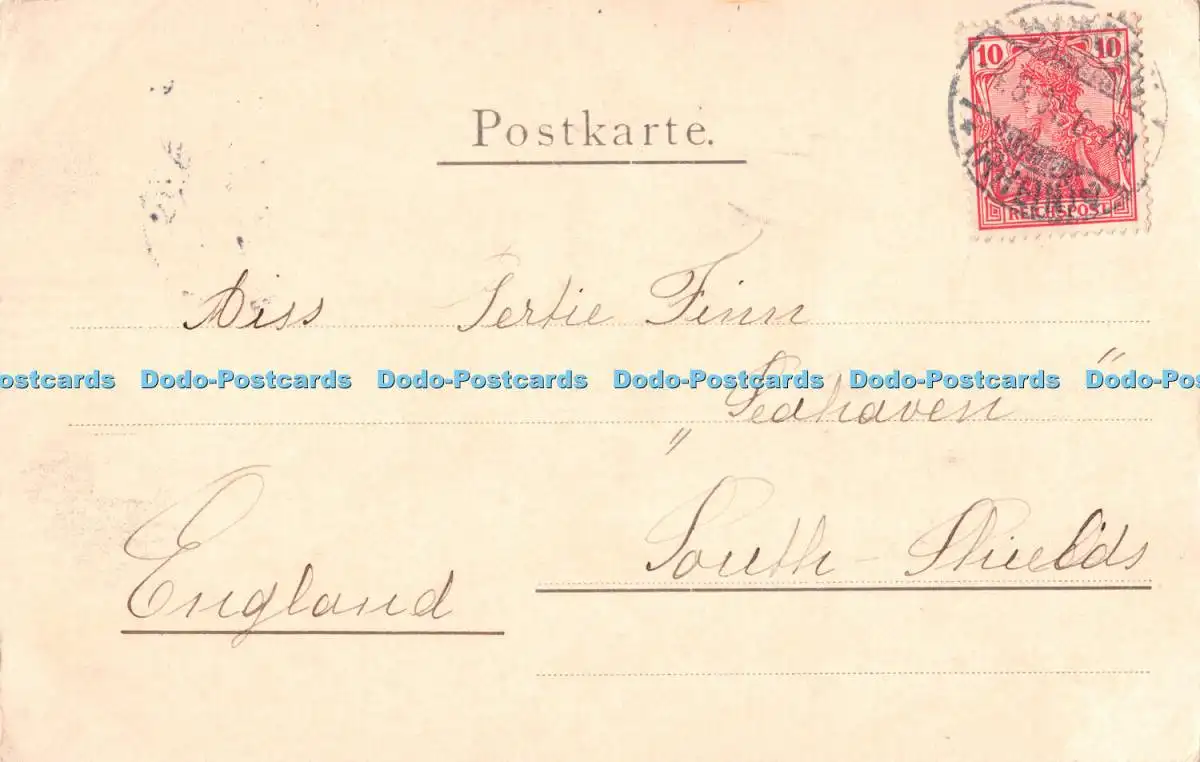 10 10
REICHSPOST
Postkarte.
Miss Gertie Finn
ostcards Dodo-Postcards Dodo-Postcards Dodo-Postcards Dodo-Postcards Dodo-Pos
" Seahaven "
England South-Shields